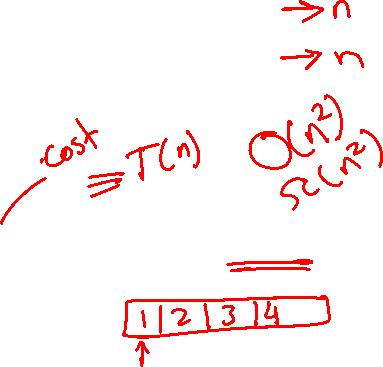 → n
→ n
cost
T(n) O(n²)
Ω(n²)
1 | 2 | 3 | 4